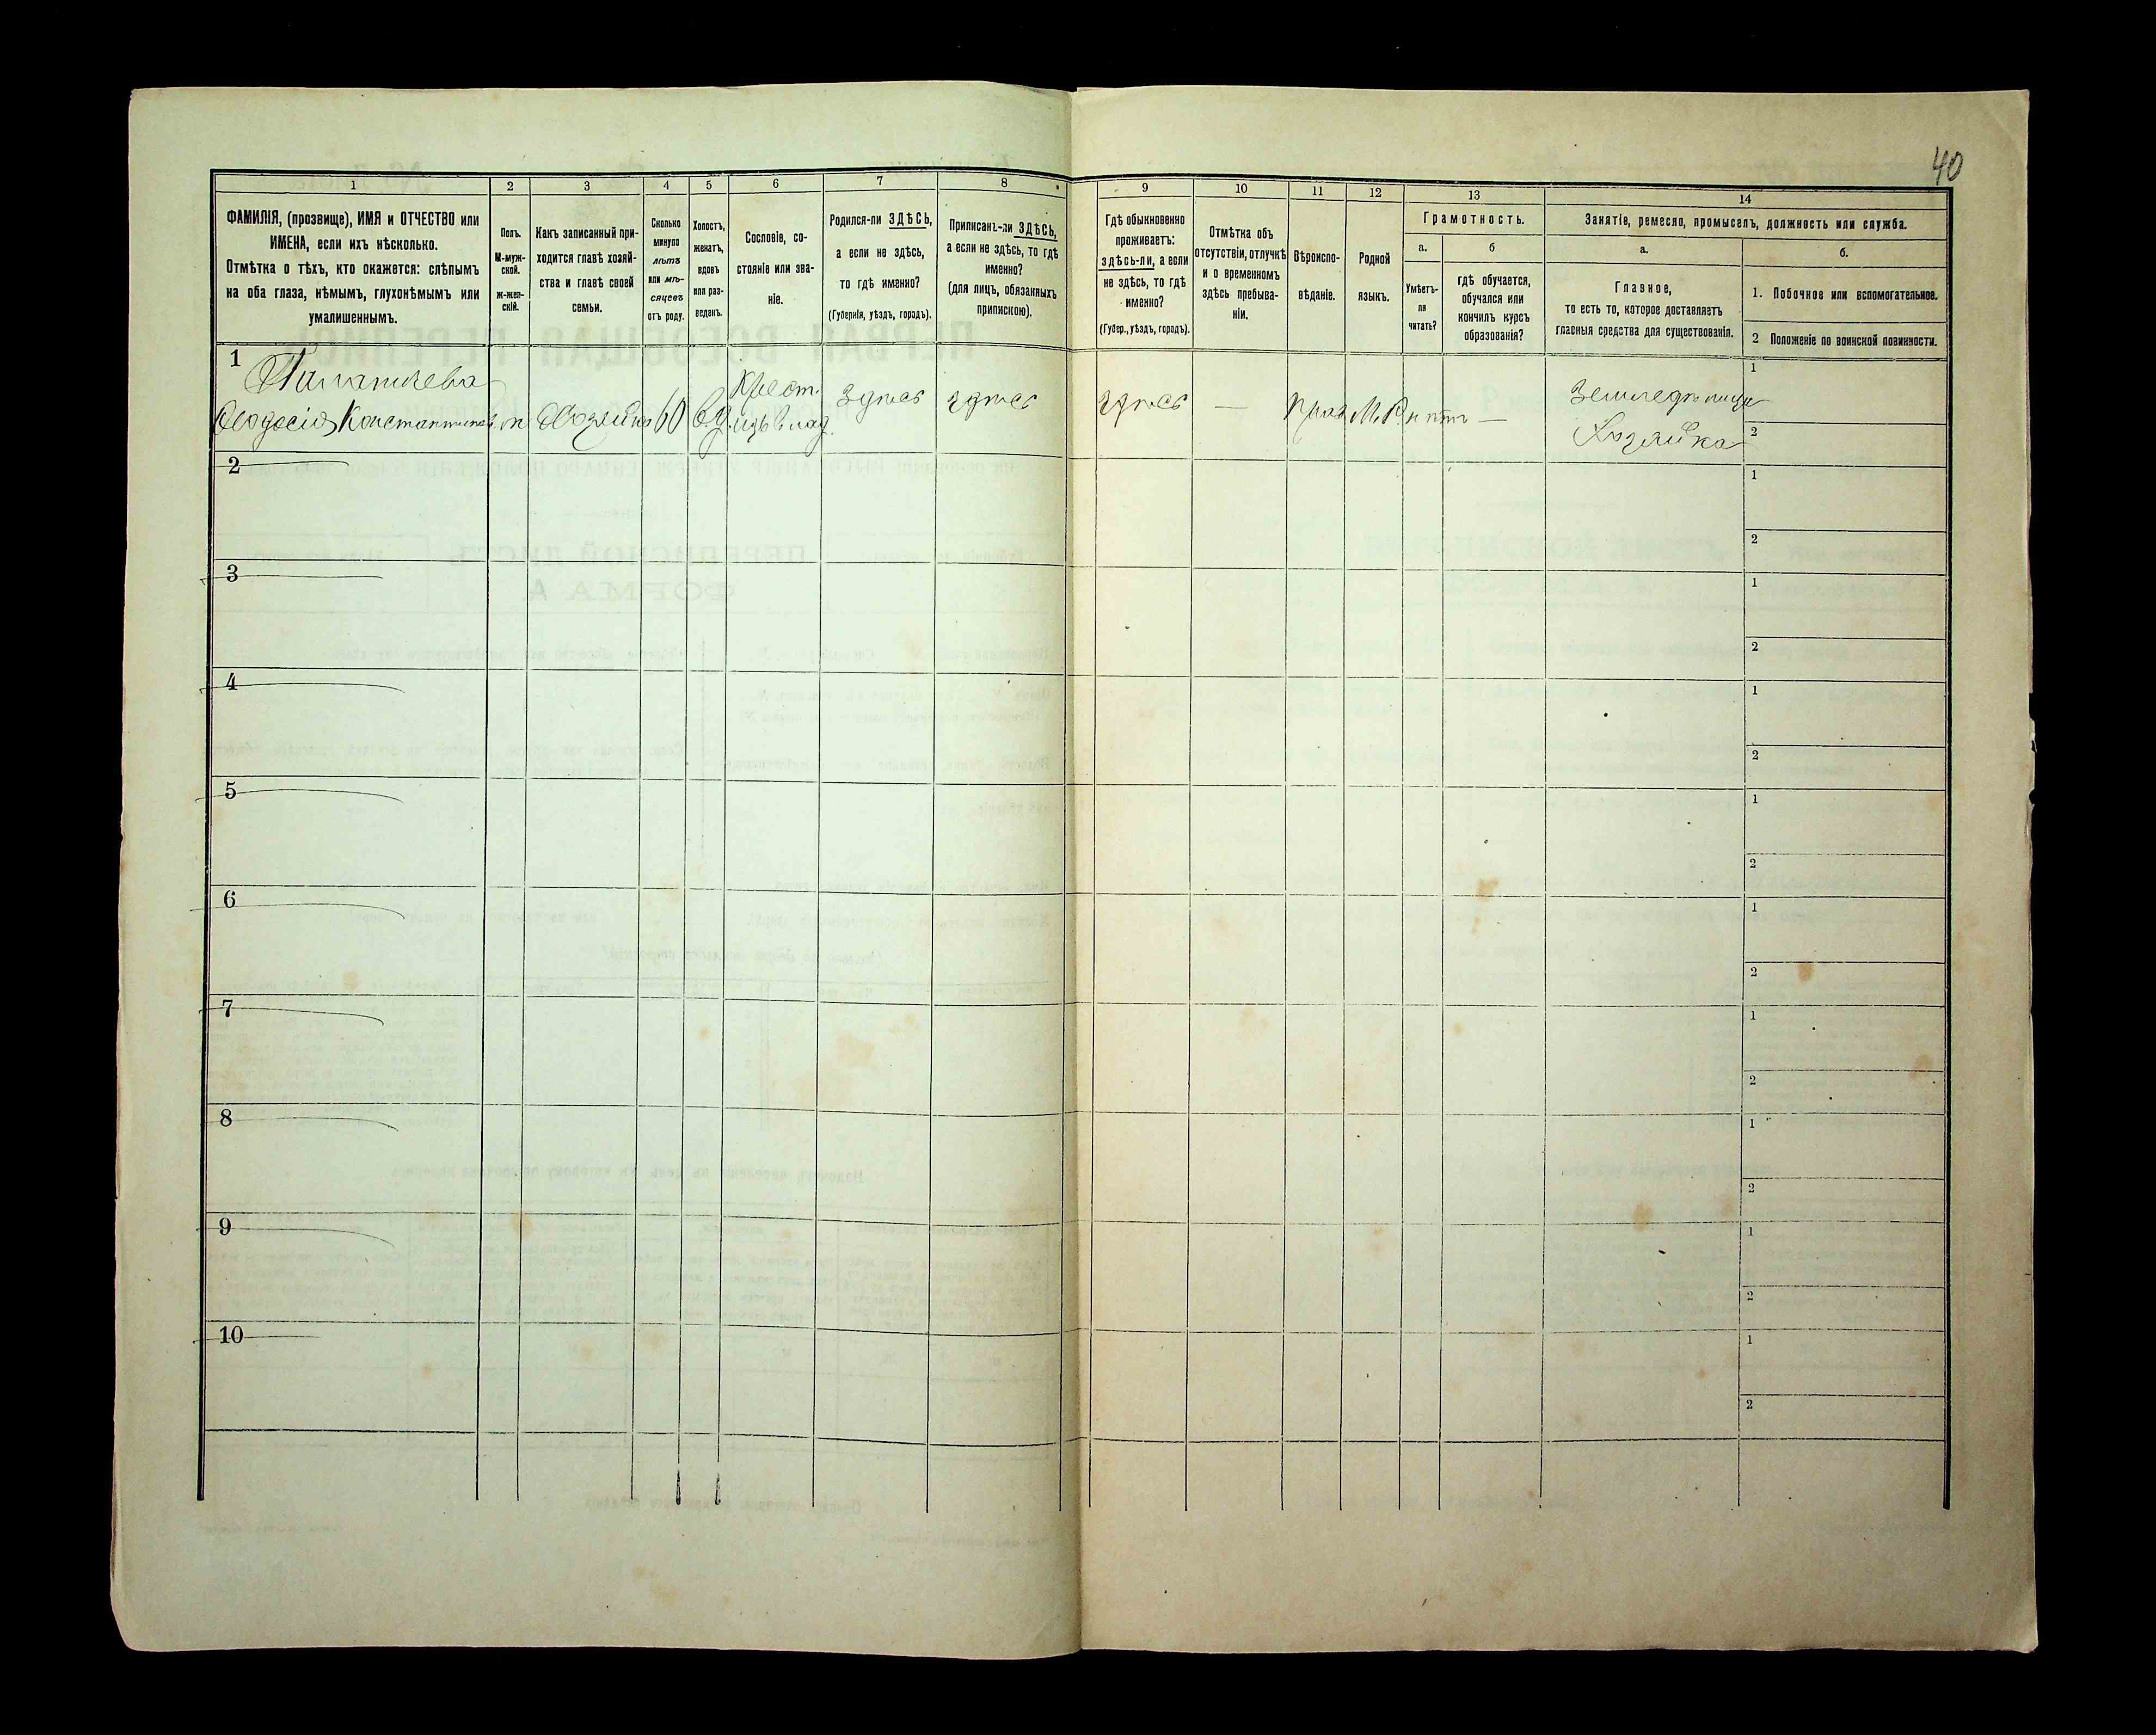 40
1 2 3 4 5 6 7 8 9 10 11 12 13 14
ФАМИЛІЯ, (прозвище), ИМЯ и ОТЧЕСТВО или
ИМЕНА, если ихъ нѣсколько.
Отмѣтка о тѣхъ, кто окажется: слѣпымъ
на оба глаза, нѣмымъ, глухонѣмымъ или
умалишеннымъ.
Полъ.
М-муж-
ской.
ж-жен-
скій.
Какъ записанный при-
ходится главѣ хозяй-
ства и главѣ своей
семьи.
Сколько
минуло
лѣтъ
или мѣ-
сяцевъ
отъ роду.
Холостъ,
женатъ,
вдовъ
или раз-
веденъ.
Сословіе, со-
стояніе или зва-
ніе.
Родился-ли ЗДѢСЬ,
а если не здѣсь,
то гдѣ именно?
(Губернія, уѣздъ, городъ).
Приписанъ-ли ЗДѢСЬ,
а если не здѣсь, то гдѣ
именно?
(для лицъ, обязанныхъ
припискою).
Гдѣ обыкновенно
проживаетъ:
здѣсь-ли, а если
не здѣсь, то гдѣ
именно?
(Губер., уѣздъ, городъ).
Отмѣтка объ
отсутствіи, отлучкѣ
и о временномъ
здѣсь пребыва-
ніи.
Вѣроиспо-
вѣданіе.
Родной
языкъ.
Грамотность.
а.
Умѣетъ-
ли
читать?
б
гдѣ обучается,
обучался или
кончилъ курсъ
образованія?
Занятіе, ремесло, промыселъ, должность или служба.
а.
Главное,
то есть то, которое доставляетъ
главныя средства для существованія.
б.
1. Побочное или вспомогательное.
2 Положеніе по воинской повинности.
1
Крест. здѣсь здѣсь здѣсь — М.Р. нѣтъ —
Ѳеодосія Константинова ж Хозяйка 60 вд. изъ влад.
Хозяйка
1
2
2
1
2
3
1
2
4
1
2
5
1
2
6
1
2
7
1
2
8
1
2
9
1
2
10
1
2